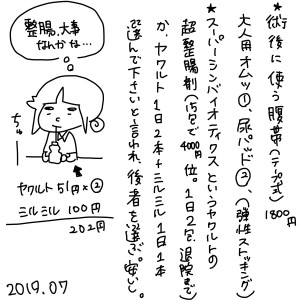 ★術後に使う腹帯(テープ式) 1800円
大人用オムツ①、尿パッド②、(弾性ストッキング)
★スーパーシンバイオティクスというヤクルトの
超整腸剤(15包で4000円位。1日2包、退院まで)
か、ヤクルト1日2本+ミルミル1日1本
選んで下さいと言われ、後者を選ぶ。安い。
整腸、大事
なんかな…
ちゅー
ヤクルト51円×②
ミルミル 100円
202円
2019.07